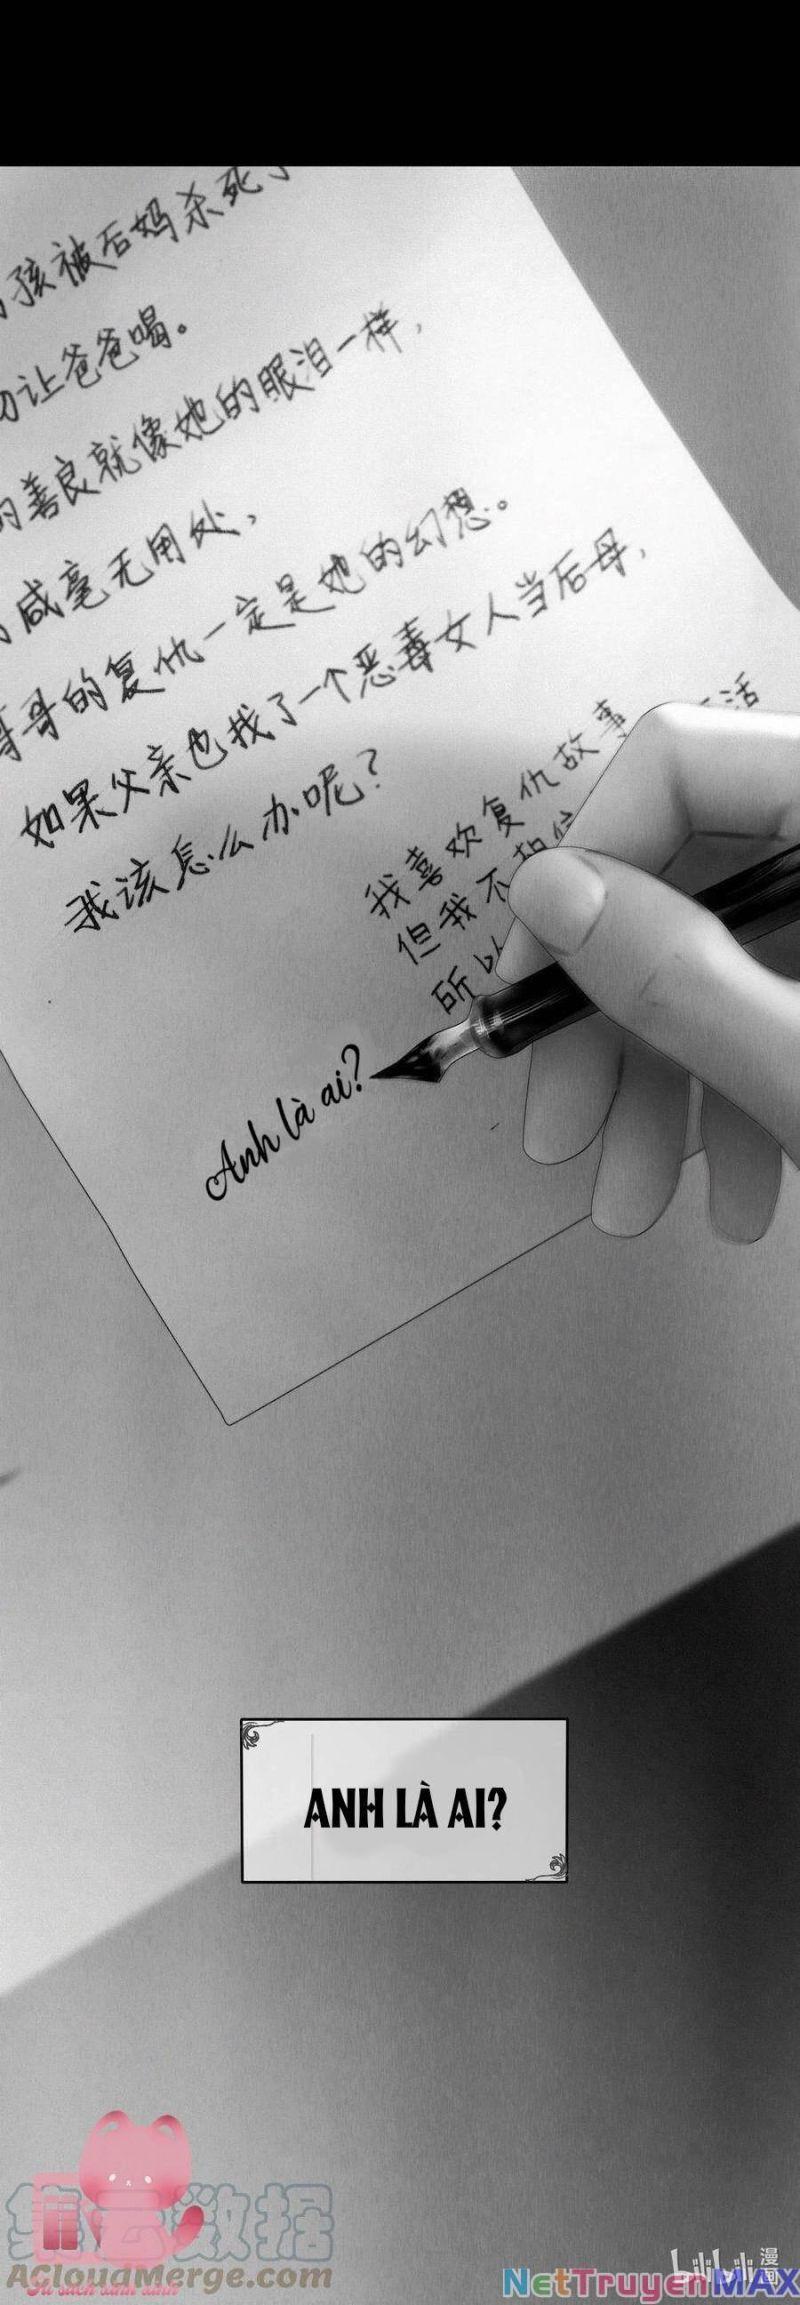 孩被后妈杀死了
让爸爸喝。
的善良就像她的眼泪一样，
咸毫无用处，
哥哥的复仇一定是她的幻想。
如果父亲也找了一个恶毒女人当后母，
我该怎么办呢？
我喜欢复仇故事 活
但我不相信
所以
Anh là ai?
ANH LÀ AI?
集云数据
ACloudMerge.com
Tủ sách xinh xinh
bilibili 漫画
NetTruyenMAX